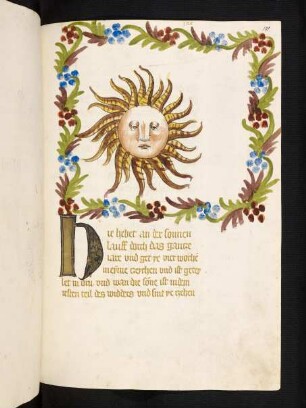 Hie hebet an der sonnen
lauff durch das gantze
iare vnd get ye vier woche
in eyme zeychen vnd ist getey
let in den vnd wan die sone ist in dem
ersten teil des widders vnd sint ye zechen